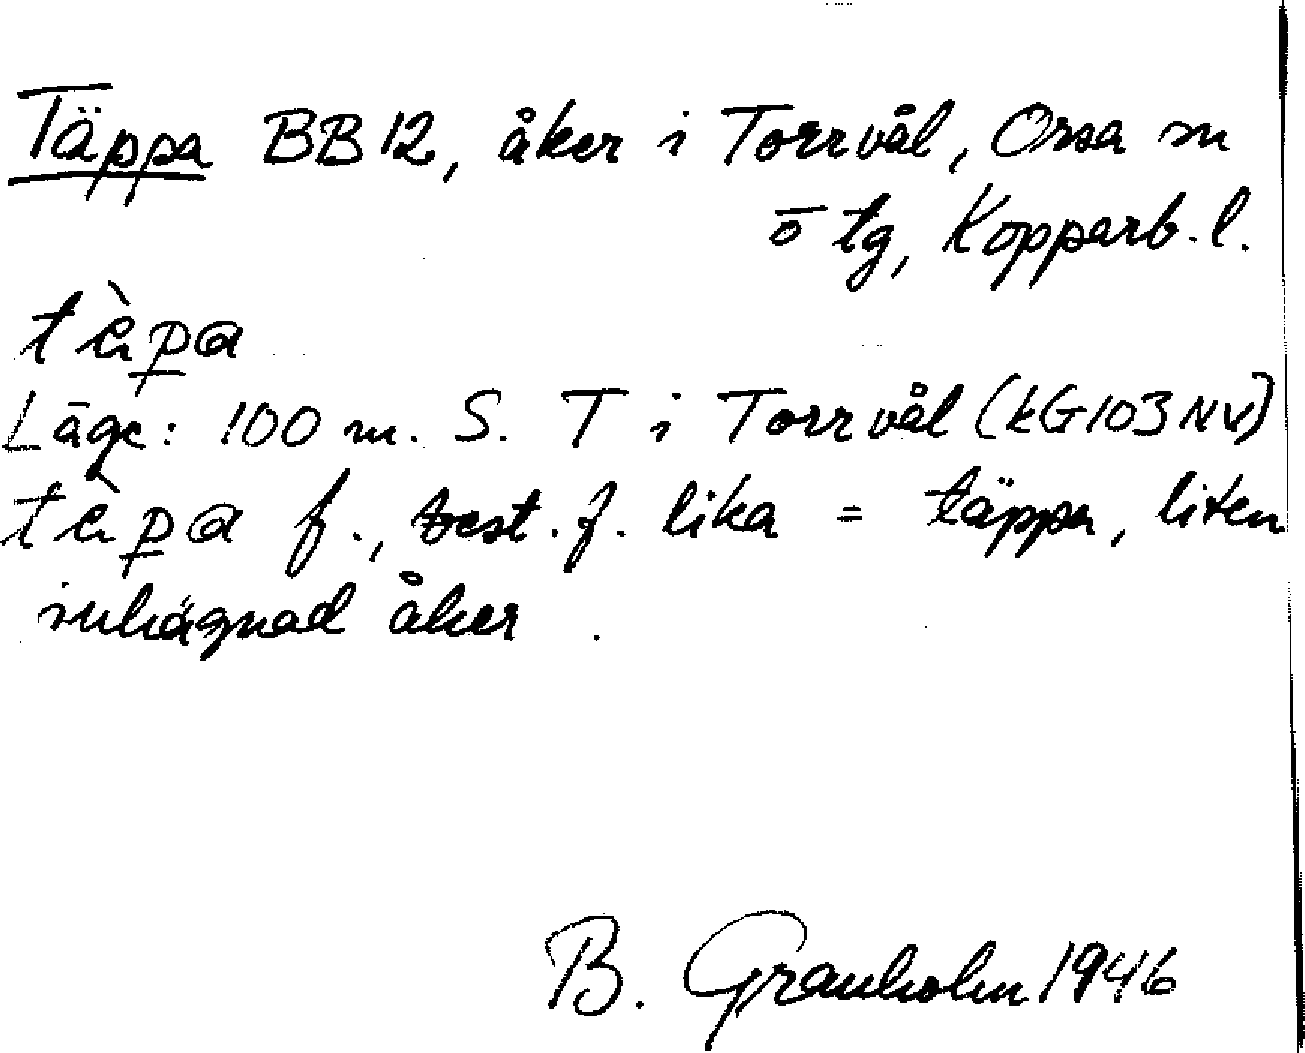 Täppa BB12, åker i Torrvål, Orsa sn
o tg, Kopparb. l.
tèpa
Läge: 100 m. S. T i Torrvål (kG103NV)
tèpa f., best. f. lika = täppa, liten
inhägnad åker.
B. Granholm 1946